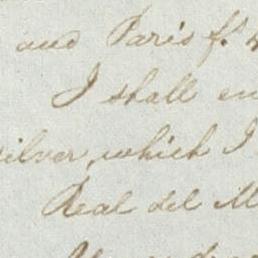 and Paris f.
I shall en
silver, which I
Real del M